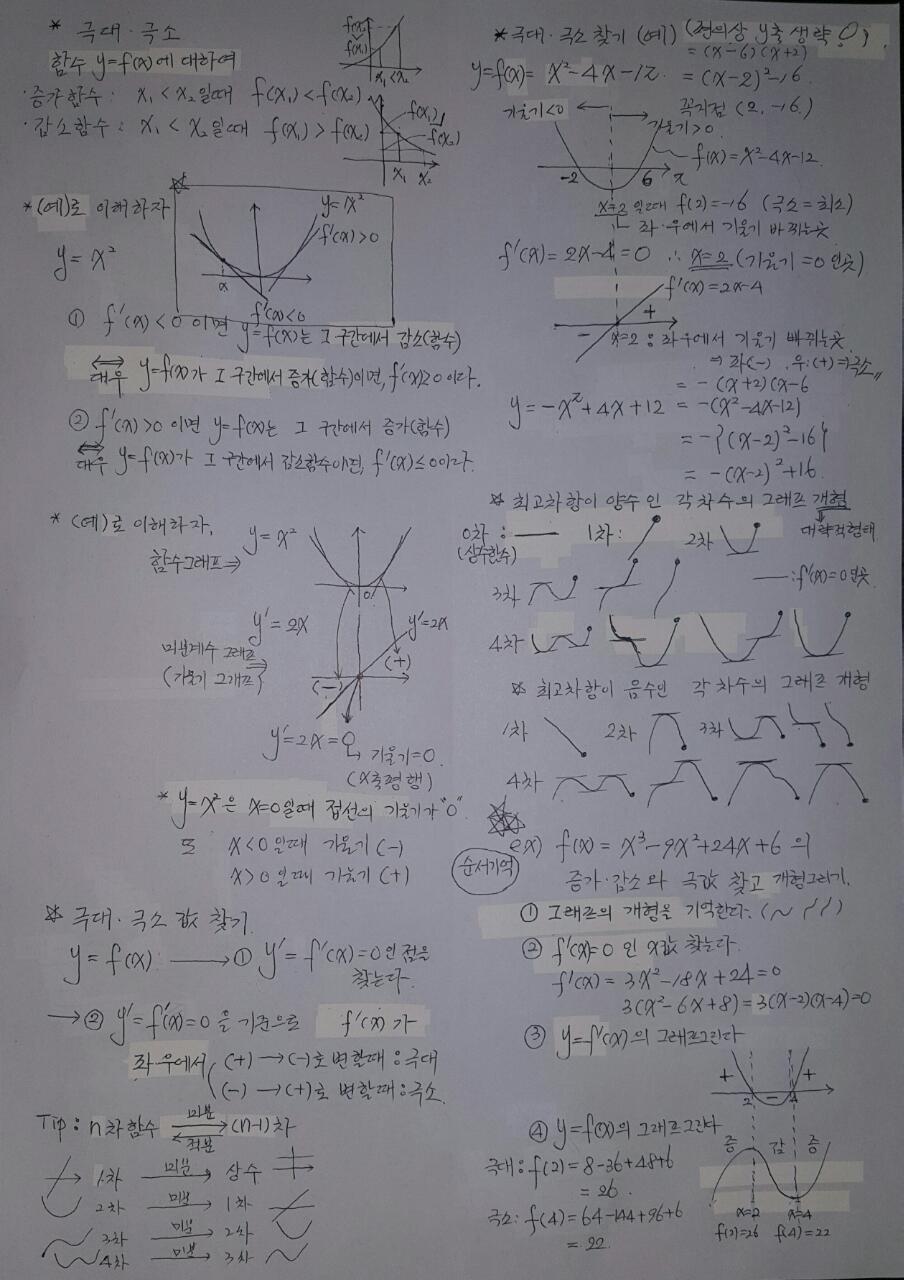 * 극대·극소
함수 y=f(x)에 대하여
f(x₂)
f(x₁)
x₁<x₂
·증가함수 : x₁ < x₂일때 f(x₁)<f(x₂)
·감소함수 : x₁ < x₂일때 f(x₁)>f(x₂)
f(x₁)
f(x₂)
x₁ x₂
* (예)로 이해하자
y = x²
y=x²
f'(x)>0
α
f'(x)<0
① f'(x)<0 이면 y=f(x)는 I 구간에서 감소(함수)
⟺ 대우 y=f(x)가 I 구간에서 증가(함수)이면, f'(x)≥0 이다.
② f'(x)>0 이면 y=f(x)는 I 구간에서 증가(함수)
⟺ 대우 y=f(x)가 I 구간에서 감소함수이면, f'(x)≤0이다.
* (예)로 이해하자,
함수그래프 ⇒ y=x²
0
y'=2x
y'=2x
미분계수 그래프
(기울기 그래프) ⇒
(-) (+)
y'=2x=0
↳ 기울기=0
(x축평행)
* y=x²은 x=0일때 접선의 기울기가 "0"
x<0일때 기울기 (-)
x>0일때 기울기 (+)
* 극대·극소 값 찾기
y=f(x) → ① y'=f'(x)=0인 점을
찾는다.
→ ② y'=f'(x)=0 을 기준으로 f'(x)가
좌·우에서 (+) → (-)로 변할때 : 극대
(-) → (+)로 변할때 : 극소.
Tip : n차함수 미분 → (n-1)차
← 적분
1차 미분 → 상수
2차 미분 → 1차
3차 미분 → 2차
4차 미분 → 3차
*극대·극소 찾기 (예) (편의상 y축 생략)
= (x-6)(x+2)
y=f(x)= x²-4x-12 = (x-2)²-16
꼭지점 (2,-16)
기울기<0 ← → 기울기>0
f(x)=x²-4x-12
-2 6 x
x=2 일때 f(2)=-16 (극소=최소)
↳ 좌·우에서 기울기 바뀌는곳
f'(x)=2x-4=0 ∴ x=2 (기울기=0인곳)
f'(x)=2x-4
- +
x=2 : 좌우에서 기울기 바뀌는곳
⇒ 좌(-), 우:(+)⇒극소〃
= -(x+2)(x-6
y=-x²+4x+12 = -(x²-4x-12)
= -{(x-2)²-16}
= -(x-2)²+16.
* 최고차항이 양수인 각 차수의 그래프 개형
↓
대략적형태
0차 :
(상수함수)
1차:
2차
3차
— : f'(x)=0인곳
4차
* 최고차항이 음수인 각 차수의 그래프 개형
1차 2차 3차
4차
순서기억
ex) f(x) = x³-9x²+24x+6 의
증가·감소와 극값 찾고 개형그리기.
① 그래프의 개형을 기억한다.
② f'(x)=0 인 x값 찾는다.
f'(x) = 3x²-18x+24=0
3(x²-6x+8)=3(x-2)(x-4)=0
③ y=f'(x)의 그래프그린다
+ 2 - 4 +
④ y=f(x)의 그래프그린다
증 감 증
극대 : f(2)=8-36+48+6
= 26.
극소: f(4)=64-144+96+6
= 22.
x=2 x=4
f(2)=26 f(4)=22